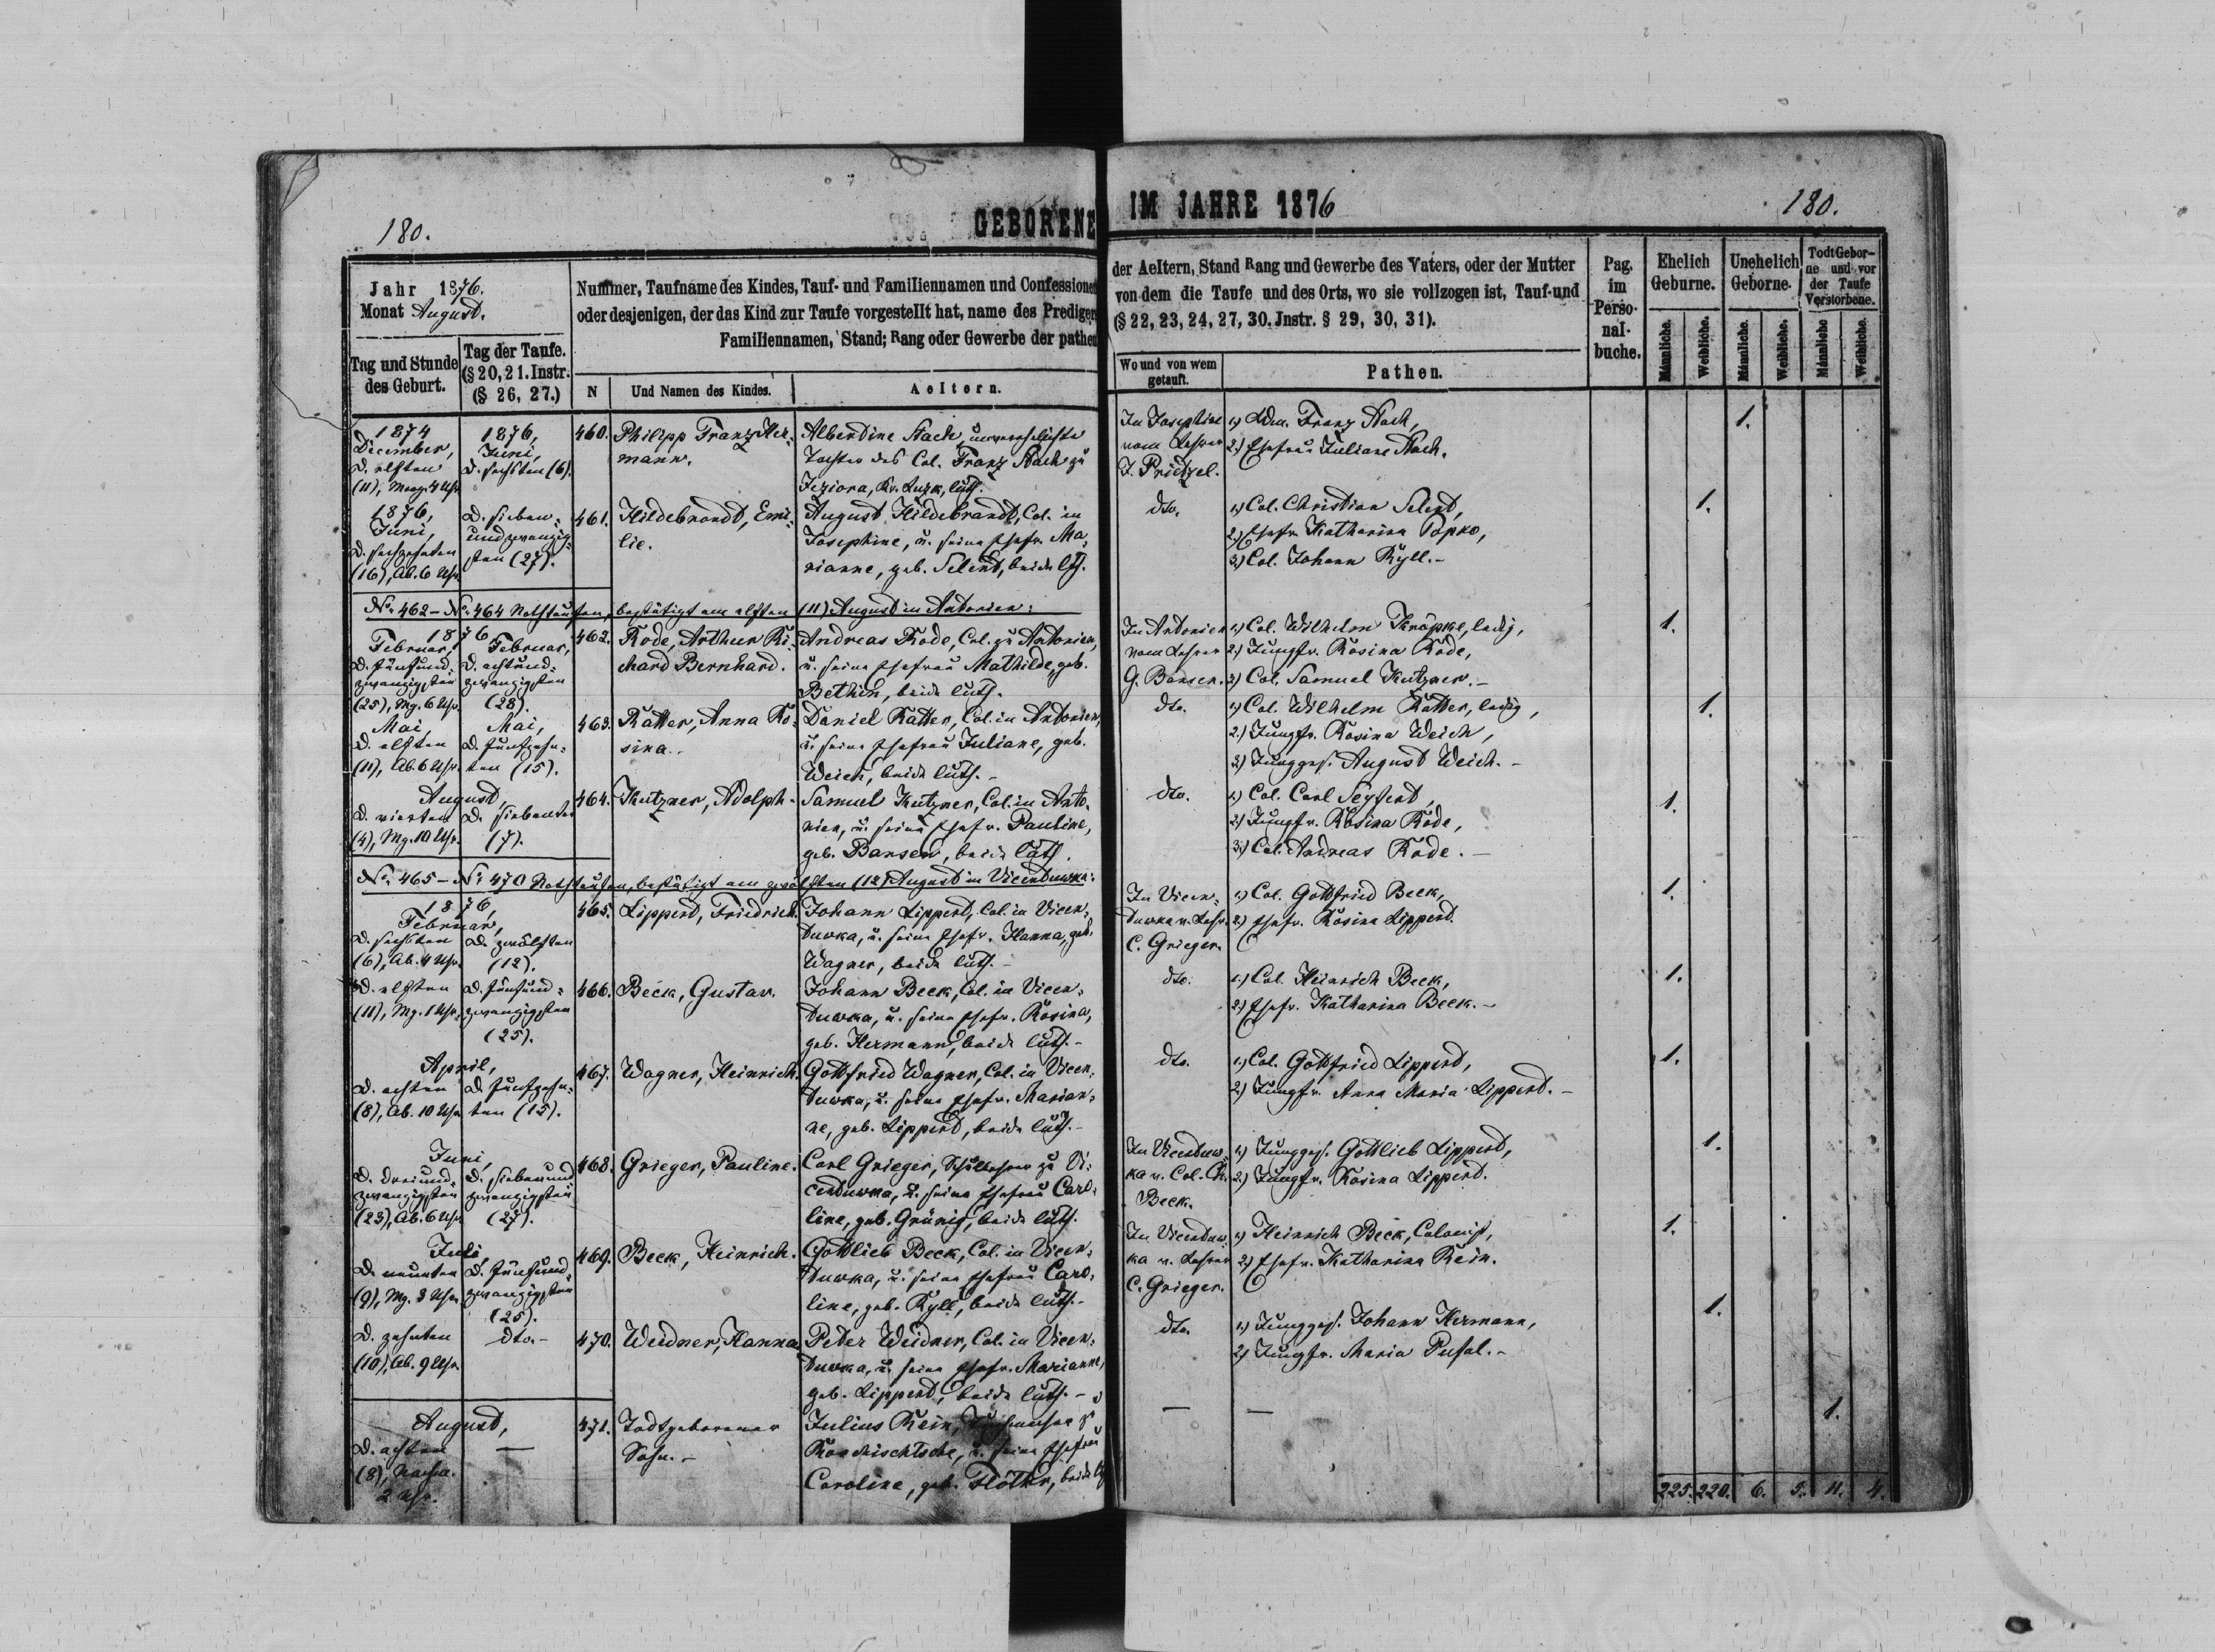 180.
GEBORENE
Jahr 1876.
Monat August.
Tag und Stunde
des Geburt.
Tag der Taufe.
(§ 20, 21. Instr.
(§ 26, 27.)
Nummer, Taufname des Kindes, Tauf- und Familiennamen und Confessionen
oder desjenigen, der das Kind zur Taufe vorgestellt hat, name des Predigers
Familiennamen, Stand; Rang oder Gewerbe der pathen
N
Und Namen des Kindes.
Aeltern.
1874
December,
d. elften
(11), Morg. 4 Uhr
1876,
Juni,
d. sechsten (6).
460.
Philipp Franz Her-
mann.
Albertine Nach, unverehelichte
Tochter des Col. Franz Nach zu
Jeziora, Kr. Luzk, luth.
1876,
Juni,
d. sechzehnten
(16), Ab. 6 Uhr
d. sieben-
undzwanzig-
sten (27).
461.
Hildebrandt, Emi-
lie.
August Hildebrandt, Col. in
Josephine, u. seine Ehefr. Ma-
rianne, geb. Selent, beide lth.
No. 462 – No. 464 Nothtaufen, bestätigt am elften (11) August in Antonien:
1876
Februar,
d. fünfund-
zwanzigsten
(25), Mg. 6 Uhr.
Februar,
d. achtund-
zwanzigsten
(28).
462.
Rode, Arthur Ri-
chard Bernhard.
Andreas Rode, Col. zu Antonien,
u. seine Ehefrau Mathilde, geb.
Bethin, beide luth.
Mai,
d. elften
(11), Ab. 6 Uhr.
Mai,
d. fünfzehn-
ten (15).
463.
Ratter, Anna Ro-
sina.
Daniel Ratter, Col. in Antonien,
u. seine Ehefrau Juliane, geb.
Weich, beide luth. –
August,
d. vierten
(4), Mg. 10 Uhr.
d. siebenten
(7).
464.
Kutzner, Adolph.
Samuel Kutzner, Col. in Anto-
nien, u. seine Ehefr. Pauline,
geb. Bansen, beide luth.
No. 465 – No. 470 Nothtaufen, bestätigt am zwölften (12) August in Vicenduwka:
1876,
Februar,
d. sechsten
(6), Ab. 4 Uhr.
d. zwölften
(12).
465.
Lippert, Friedrich.
Johann Lippert, Col. in Vicen-
tuwka, u. seine Ehefr. Hanna, geb.
Wagner, beide luth. –
d. elften
(11), Mg. 1 Uhr.
d. fünfund-
zwanzigsten
(25).
466.
Beck, Gustav.
Johann Beck, Col. in Vicen-
tuwka, u. seine Ehefr. Rosina,
geb. Hermann, beide luth. –
April,
d. achten
(8), Ab. 10 Uhr
d. fünfzehn-
ten (15).
467.
Wagner, Heinrich.
Gottfried Wagner, Col. in Vicen-
tuwka, u. seine Ehefr. Marian-
ne, geb. Lippert, beide luth. –
Juni,
d. dreiund-
zwanzigsten
(23), Ab. 6 Uhr
d. siebenund
zwanzigsten
(27).
468.
Grieger, Pauline.
Carl Grieger, Schullehrer zu Vi-
centuwka, u. seine Ehefrau Caro-
line, geb. Grünig, beide luth.
Juli
d. neunten
(9), Mg. 3 Uhr
d. fünfund-
zwanzigsten
(25).
469.
Beck, Heinrich.
Gottlieb Beck, Col. in Vicen-
tuwka, u. seine Ehefrau Caro-
line, geb. Ryll, beide luth. –
d. zehnten
(10), Ab. 9 Uhr.
dto. –
470.
Weidner, Hanna
Peter Weidner, Col. in Vicen-
tuwka, u. seine Ehefr. Marianne,
geb. Lippert, beide luth. –
August,
d. achten
(8), Nachm.
2 Uhr.
—
471.
Todtgeborener
Sohn. –
Julius Rein, zu
Roschischtsche, u. seine Ehefrau
Caroline, geb. Flöther, beide
IM JAHRE 1876
180.
der Aeltern, Stand Rang und Gewerbe des Vaters, oder der Mutter
von dem die Taufe und des Orts, wo sie vollzogen ist, Tauf-und
(§ 22, 23, 24, 27, 30. Jnstr. § 29, 30, 31).
Wo und von wem
getauft.
Pathen.
Pag.
im
Perso-
nal-
buche.
Ehelich
Geburne.
Unehelich
Geborne.
Todt Gebor-
ne und vor
der Taufe
Verstorbene.
Männliche.
Weibliche.
Männliche.
Weibliche.
Männliche
Weibliche.
In Josephine
vom Lehrer
J. Prietzel.
1.) Franz Nach,
2.) Ehefrau Juliane Nach.
1.
dto.
1.) Col. Christian Selent,
2.) Ehefr. Katharina Popko,
3.) Col. Johann Ryll. –
1.
In Antonien
vom Lehrer
G. Bansen.
1.) Col. Wilhelm Kröpke, ledig,
2.) Jungfr. Rosina Rode,
3.) Col. Samuel Kutzner. –
1.
dto.
1.) Col. Wilhelm Ratter, ledig,
2.) Jungfr. Rosina Weich,
3.) Jungges. August Weich. –
1.
dto.
1.) Col. Carl Seyfert,
2.) Jungfr. Rosina Rode,
3.) Col. Andreas Rode. –
1.
In Vicen-
tuwka v. Lehr.
C. Grieger.
1.) Col. Gottfried Beck,
2.) Ehefr. Rosina Lippert.
1.
dto.
1.) Col. Heinrich Beck,
2.) Ehefr. Katharina Beck. –
1.
dto.
1.) Col. Gottfried Lippert,
2.) Jungfr. Anna Maria Lippert. –
1.
In Vicentuw-
ka v. Col. G.
Beck.
1.) Jungges. Gottlieb Lippert,
2.) Jungfr. Rosina Lippert.
1.
In Vicentuw-
ka v. Lehrer
C. Grieger.
1.) Heinrich Beck, Colonist,
2.) Ehefr. Katharina Rein.
1.
dto.
1.) Jungges. Johann Hermann,
2.) Jungfr. Maria Pufal. –
1.
—
—
1.
225. 220. 6. 5. 11. 4.